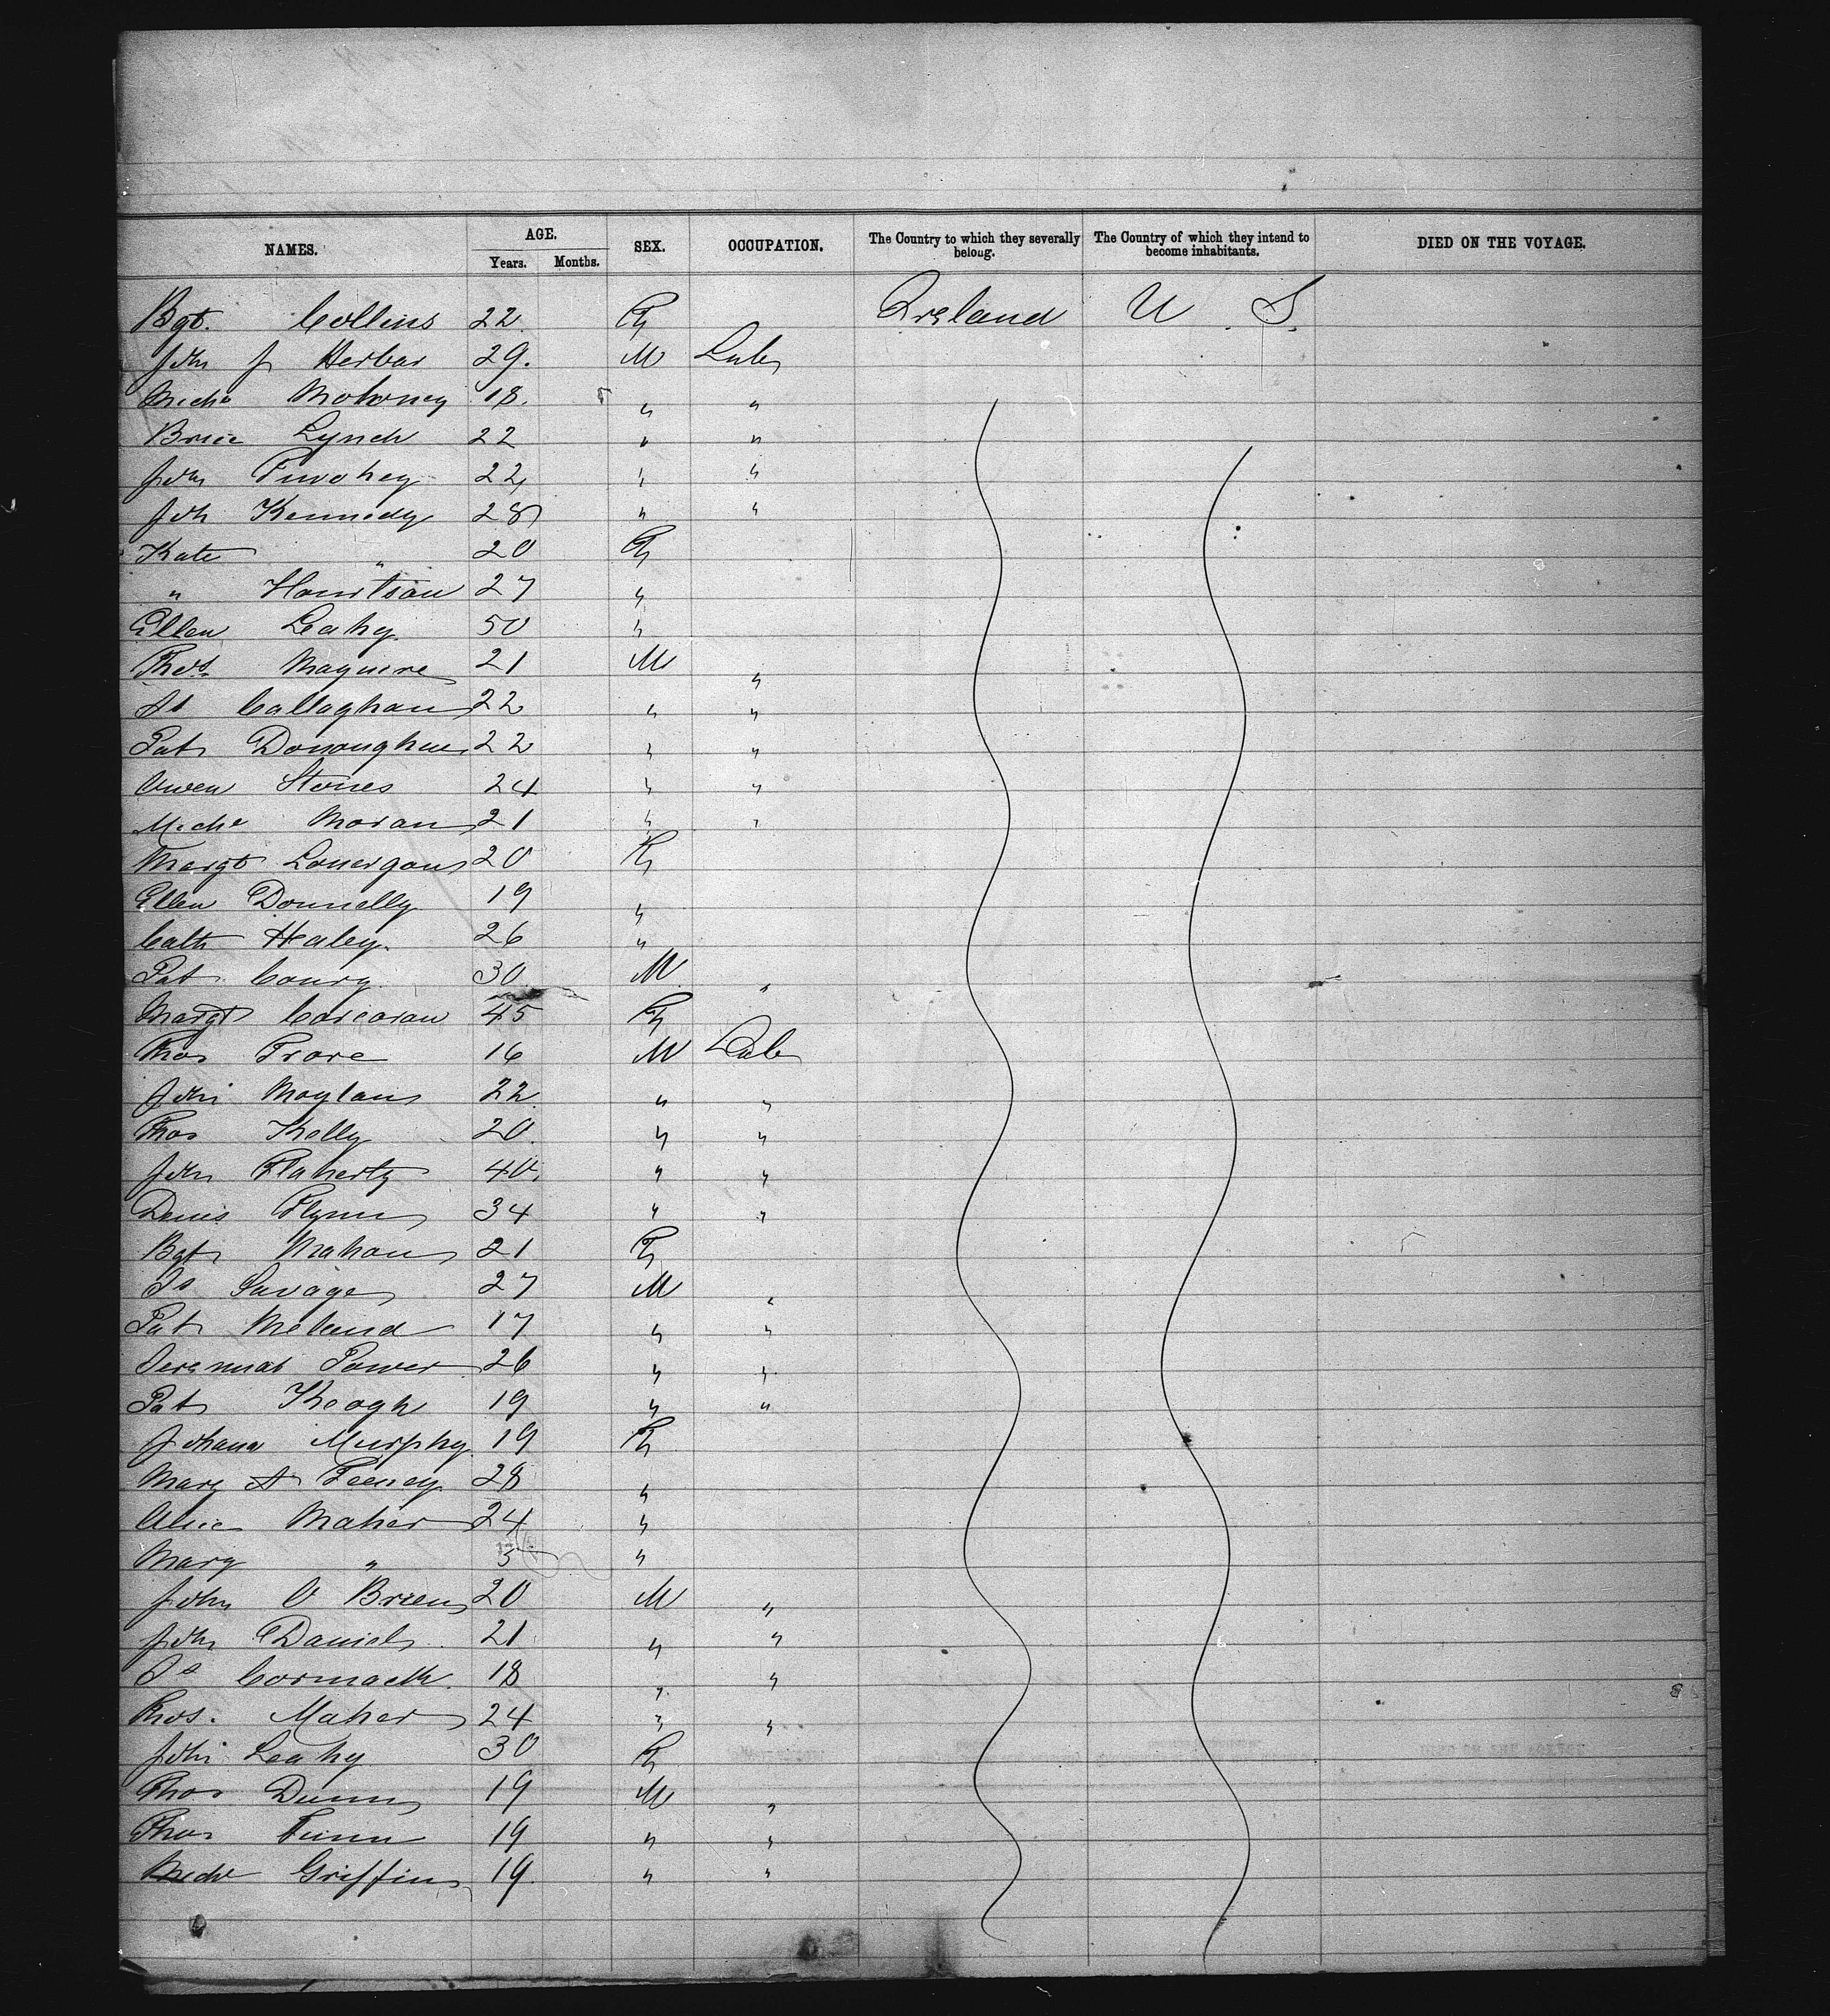 NAMES. AGE. SEX. OCCUPATION. The Country to which they severally belong. The Country of which they intend to become inhabitants. DIED ON THE VOYAGE.
Years. Months.
Bgt. Collins 22 F Ireland U. S.
John J Herbar 29. M Lab
Miche Mohoney 18. " "
Brice Lynch 22 " "
John Twohey 22 " "
Joh Kennedy 28 " "
Kate " 20 F
" 27 "
Ellen Leahy 50 "
Thos Maguire 21 M "
Callaghan 22 " "
Pat Donoughue 22 " "
Owen Stones 24 " "
Miche Moran 21 " "
Margt Lonergan 20 F
Ellen Donnelly 19 "
Cath Haley. 26 "
Pat Coury 30 M "
Margt Corcoran 45 F
Thos Prore 16 M Lab
John Moylan 22 " "
Thos Kelly 20 " "
John Flaherty 40. " "
Denis Flynn 34 " "
Bgt Mahon 21 F
Js Savage 27 M "
Pat Meland 17 " "
Power 26 " "
Pat Keogh 19 " "
Johana Murphy 19 F
Mary A Feeney 28 "
Alice Maher 24 "
Mary " 5 "
John O Brien 20 M "
John Daniel 21 " "
Js Cormack. 18 " "
Thos. Maher 24 " "
John Leahy 30 F
Thos Dunn 19 M "
Thos Finn 19 " "
Miche Griffin 19. " "